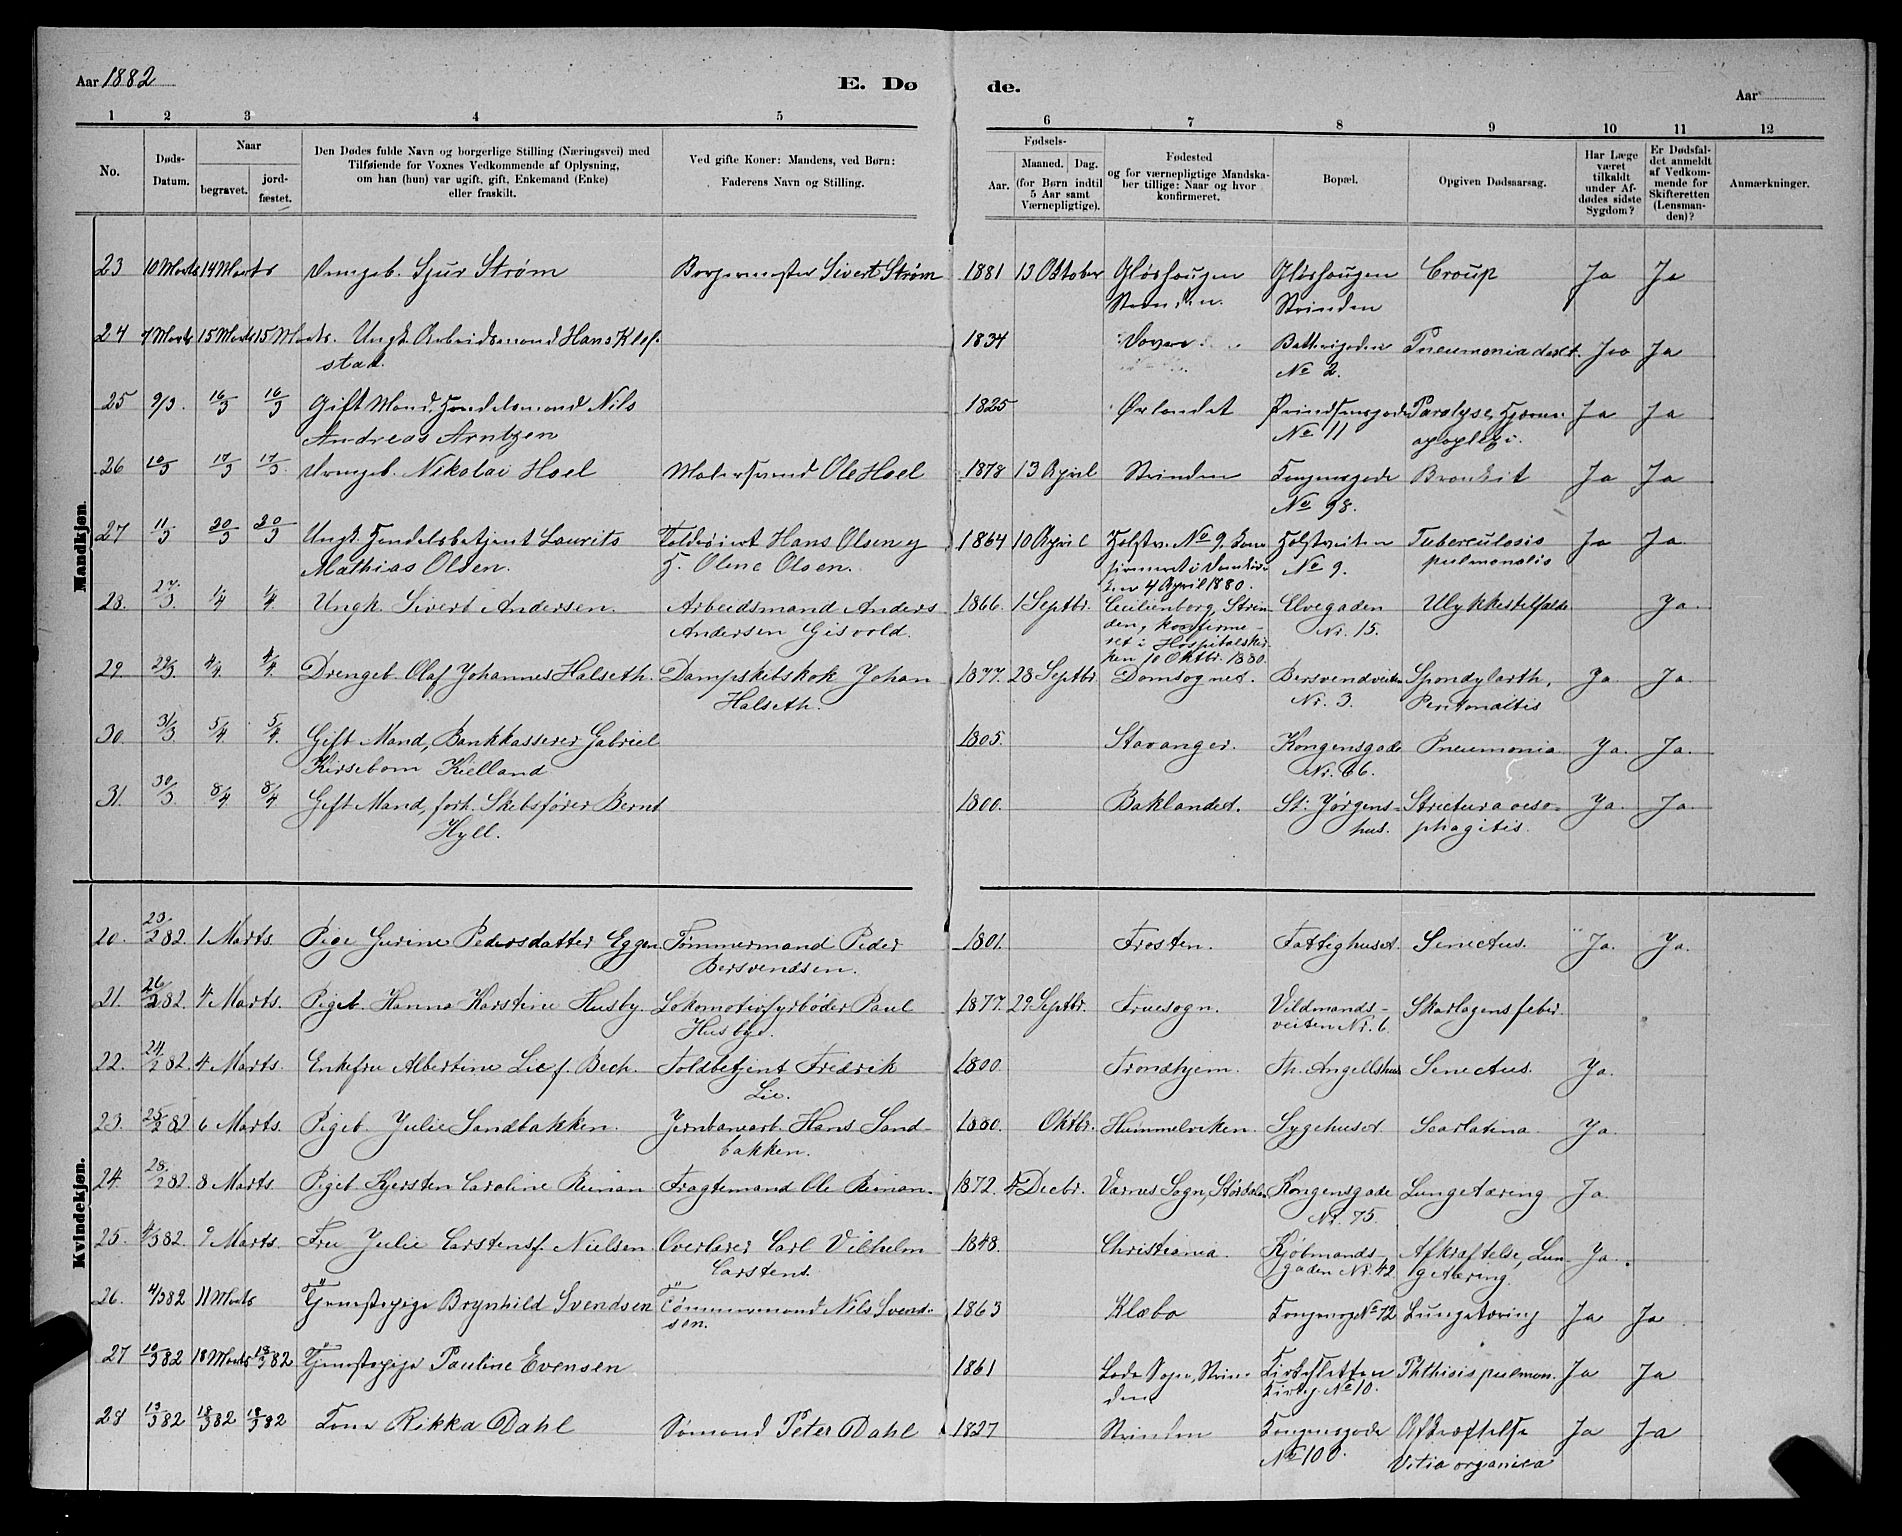 Aar 1882
E. Dø
de.
Aar
1 2 3 4 5 6 7 8 9 10 11 12
No.
Døds-
Datum.
Naar
begravet.
jord-
fæstet.
Den Dødes fulde Navn og borgerlige Stilling (Næringsvei) med
Tilføiende for Voxnes Vedkommende af Oplysning,
om han (hun) var ugift, gift, Enkemand (Enke)
eller fraskilt.
Ved gifte Koner: Mandens, ved Børn:
Faderens Navn og Stilling.
Fødsels-
Aar.
Maaned. Dag.
(for Børn indtil
5 Aar samt
Værnepligtige).
Fødested
og for værnepligtige Mandska-
ber tillige: Naar og hvor
konfirmeret.
Bopæl.
Opgiven Dødsaarsag.
Har Læge
været
tilkaldt
under Af-
dødes sidste
Sygdom?
Er Dødsfal-
det anmeldt
af Vedkom-
mende for
Skifteretten
(Lensman-
den)?
Anmærkninger.
Mandkjøn.
23 10 Marts 14 Marts Drengeb. Sjur Strøm Borgermester Sivert Strøm 1881 13 Oktober Gløshaugen Gløshaugen Croup Ja Ja
Strinden. Strinden
24 7 Marts 15 Marts 15 Marts. Ungk. Arbeidsmand Hans Klef- 1834 Dovre Batterigaden Pneumonia dext. Ja Ja
stad. No 2.
25 9/3. 16/3 16/3 Gift Mand, Handelsmand Nils 1825 Ørlandet Prindsensgade Paralyse, Hjerne- Ja Ja
Andreas Arntzen No 11 apoplexi.
26 10/3 17/3 17/3. Drengeb. Nikolai Hoel Malersvend Ole Hoel 1878 13 April Strinden Kongensgade Bronkit Ja Ja
No 98.
27 11/3 20/3 20/3 Ungk. Handelsbetjent Laurits Toldrorert Hans Olsen og 1864 10 April Holstv. No 9, kon- Holstveiten Tuberculosis Ja Ja
Mathias Olsen. H. Oline Olsen. firmeret i Domkir- No 9. pulmonalis
ken 4 April 1880.
28. 27/3. 1/4 1/4. Ungk. Sivert Andersen. Arbeidsmand Anders 1866. 1 Septbr. Cecilienborg, Strin- Elvegaden Ulykkestilfælde Ja.
Andersen Gisvold. den, konfirme- Nr. 15.
ret i Hospitalskir-
ken 10 Oktbr. 1880.
29. 29/3. 4/4. 4/4. Drengeb. Olaf Johannes Halseth. Dampskibskok Johan 1877. 28 Septbr. Domsognet. Bersvendveiten Spondylarth, Ja. Ja.
Halseth. Nr. 3. Peritonaitis
30. 31/3. 5/4. 5/4. Gift Mand, Bankkasserer Gabriel 1805. Stavanger. Kongensgade Pneumonia. Ja. Ja.
Kirsebom Kielland Nr. 66.
31. 30/3 8/4 8/4 Gift Mand, forh. Skibsfører Bernt 1800. Baklandet. St: Jørgens- Strictura oeso- Ja. Ja.
Hyll. hus. phagitis.
Kvindekjøn.
20. 23/2 82. 1 Marts. Pige Gurine Pedersdatter Eggen. Tømmermand Peder 1801. Frosten. Fattighuset. Senectus. Ja. Ja.
Bersvendsen.
21. 26/2 82. 4 Marts. Pigeb. Hanna Karstine Husby. Lokomotivfyrbøder Paul 1877. 29 Septbr. Fruesogn. Vildmands- Skarlagensfeber.
Husbye. veiten Nr. 6.
22. 24/2 82. 4 Marts. Enkefru Albertine Lie f. Bech. Toldbetjent Fredrik 1800. Trondhjem. Th. Angellshus Senectus. Ja.
Lie.
23. 25/2 82 6 Marts. Pigeb. Julie Sandbakken. Jernbanearb. Hans Sand- 1880. Oktbr. Hummelviken. Sygehuset Scarlatina. Ja.
bakken.
24. 28/2 82. 8 Marts. Pigeb. Kjersten Caroline Rinnan Fragtemand Ole Rinnan. 1872. 4 Decbr. Værnes Sogn, Stördalen Kongensgade Lungetæring Ja.
Nr. 75.
25. 4/3 82. 9 Marts. Fru Julie Carstens f. Nielsen. Overlærer Carl Vilhelm 1848. Christiania. Kjøbmands- Afkræftelse, Lun- Ja.
Carstens. gaden Nr. 42 getæring.
26. 4/3 82 11 Marts Tjenestepige Brynhild Svendsen Tömmermand Nils Svend- 1863 Klæbo Kongensg. No 72 Lungetæring Ja Ja
sen.
27 10/3 82 18 Marts 18/3 82 Tjenestepige Pauline Evensen 1861 Lade Sogn, Strin- Phthisis pulmon. Ja Ja
den No 10.
28 13/3 82 18/3 82 18/3 82 Kone Rikka Dahl Sömand Peter Dahl 1827 Strinden Kongensgade Afkræftelse Ja Ja
No 100. Vitia organica